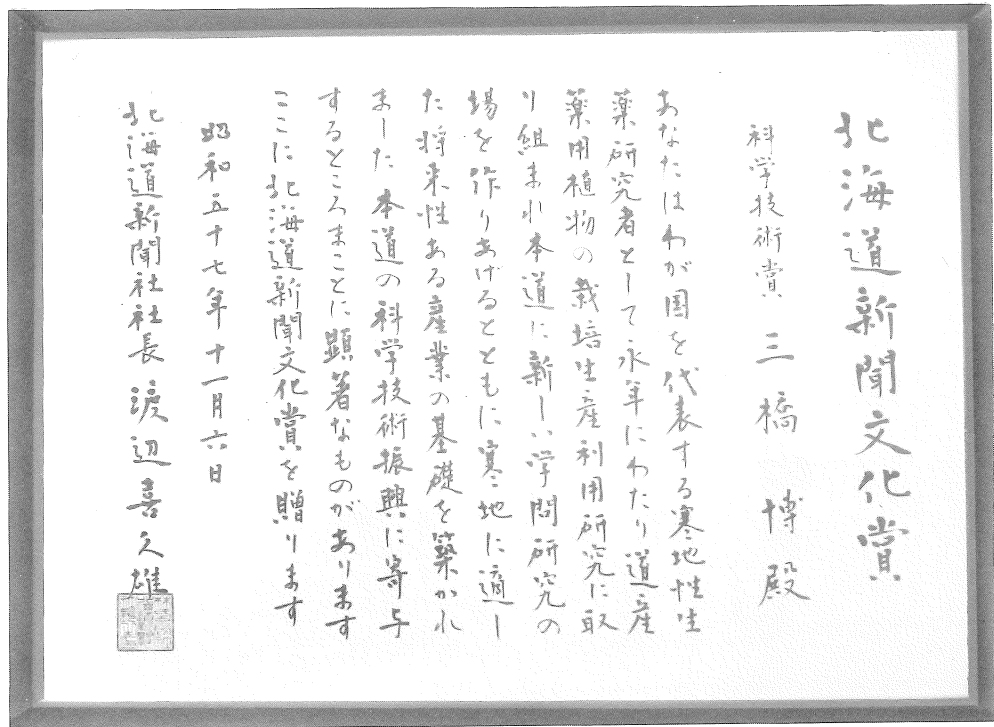 北海道新聞文化賞
科学技術賞 三橋 博殿
あなたはわが国を代表する寒地性生
薬研究者として永年にわたり道産
薬用植物の栽培生産利用研究に取
り組まれ本道に新しい学問研究の
場を作りあげるとともに寒地に適し
た将来性ある産業の基礎を築かれ
ました 本道の科学技術振興に寄与
するところまことに顕著なものがあります
ここに北海道新聞文化賞を贈ります
昭和五十七年十一月六日
北海道新聞社社長 渡辺喜久雄